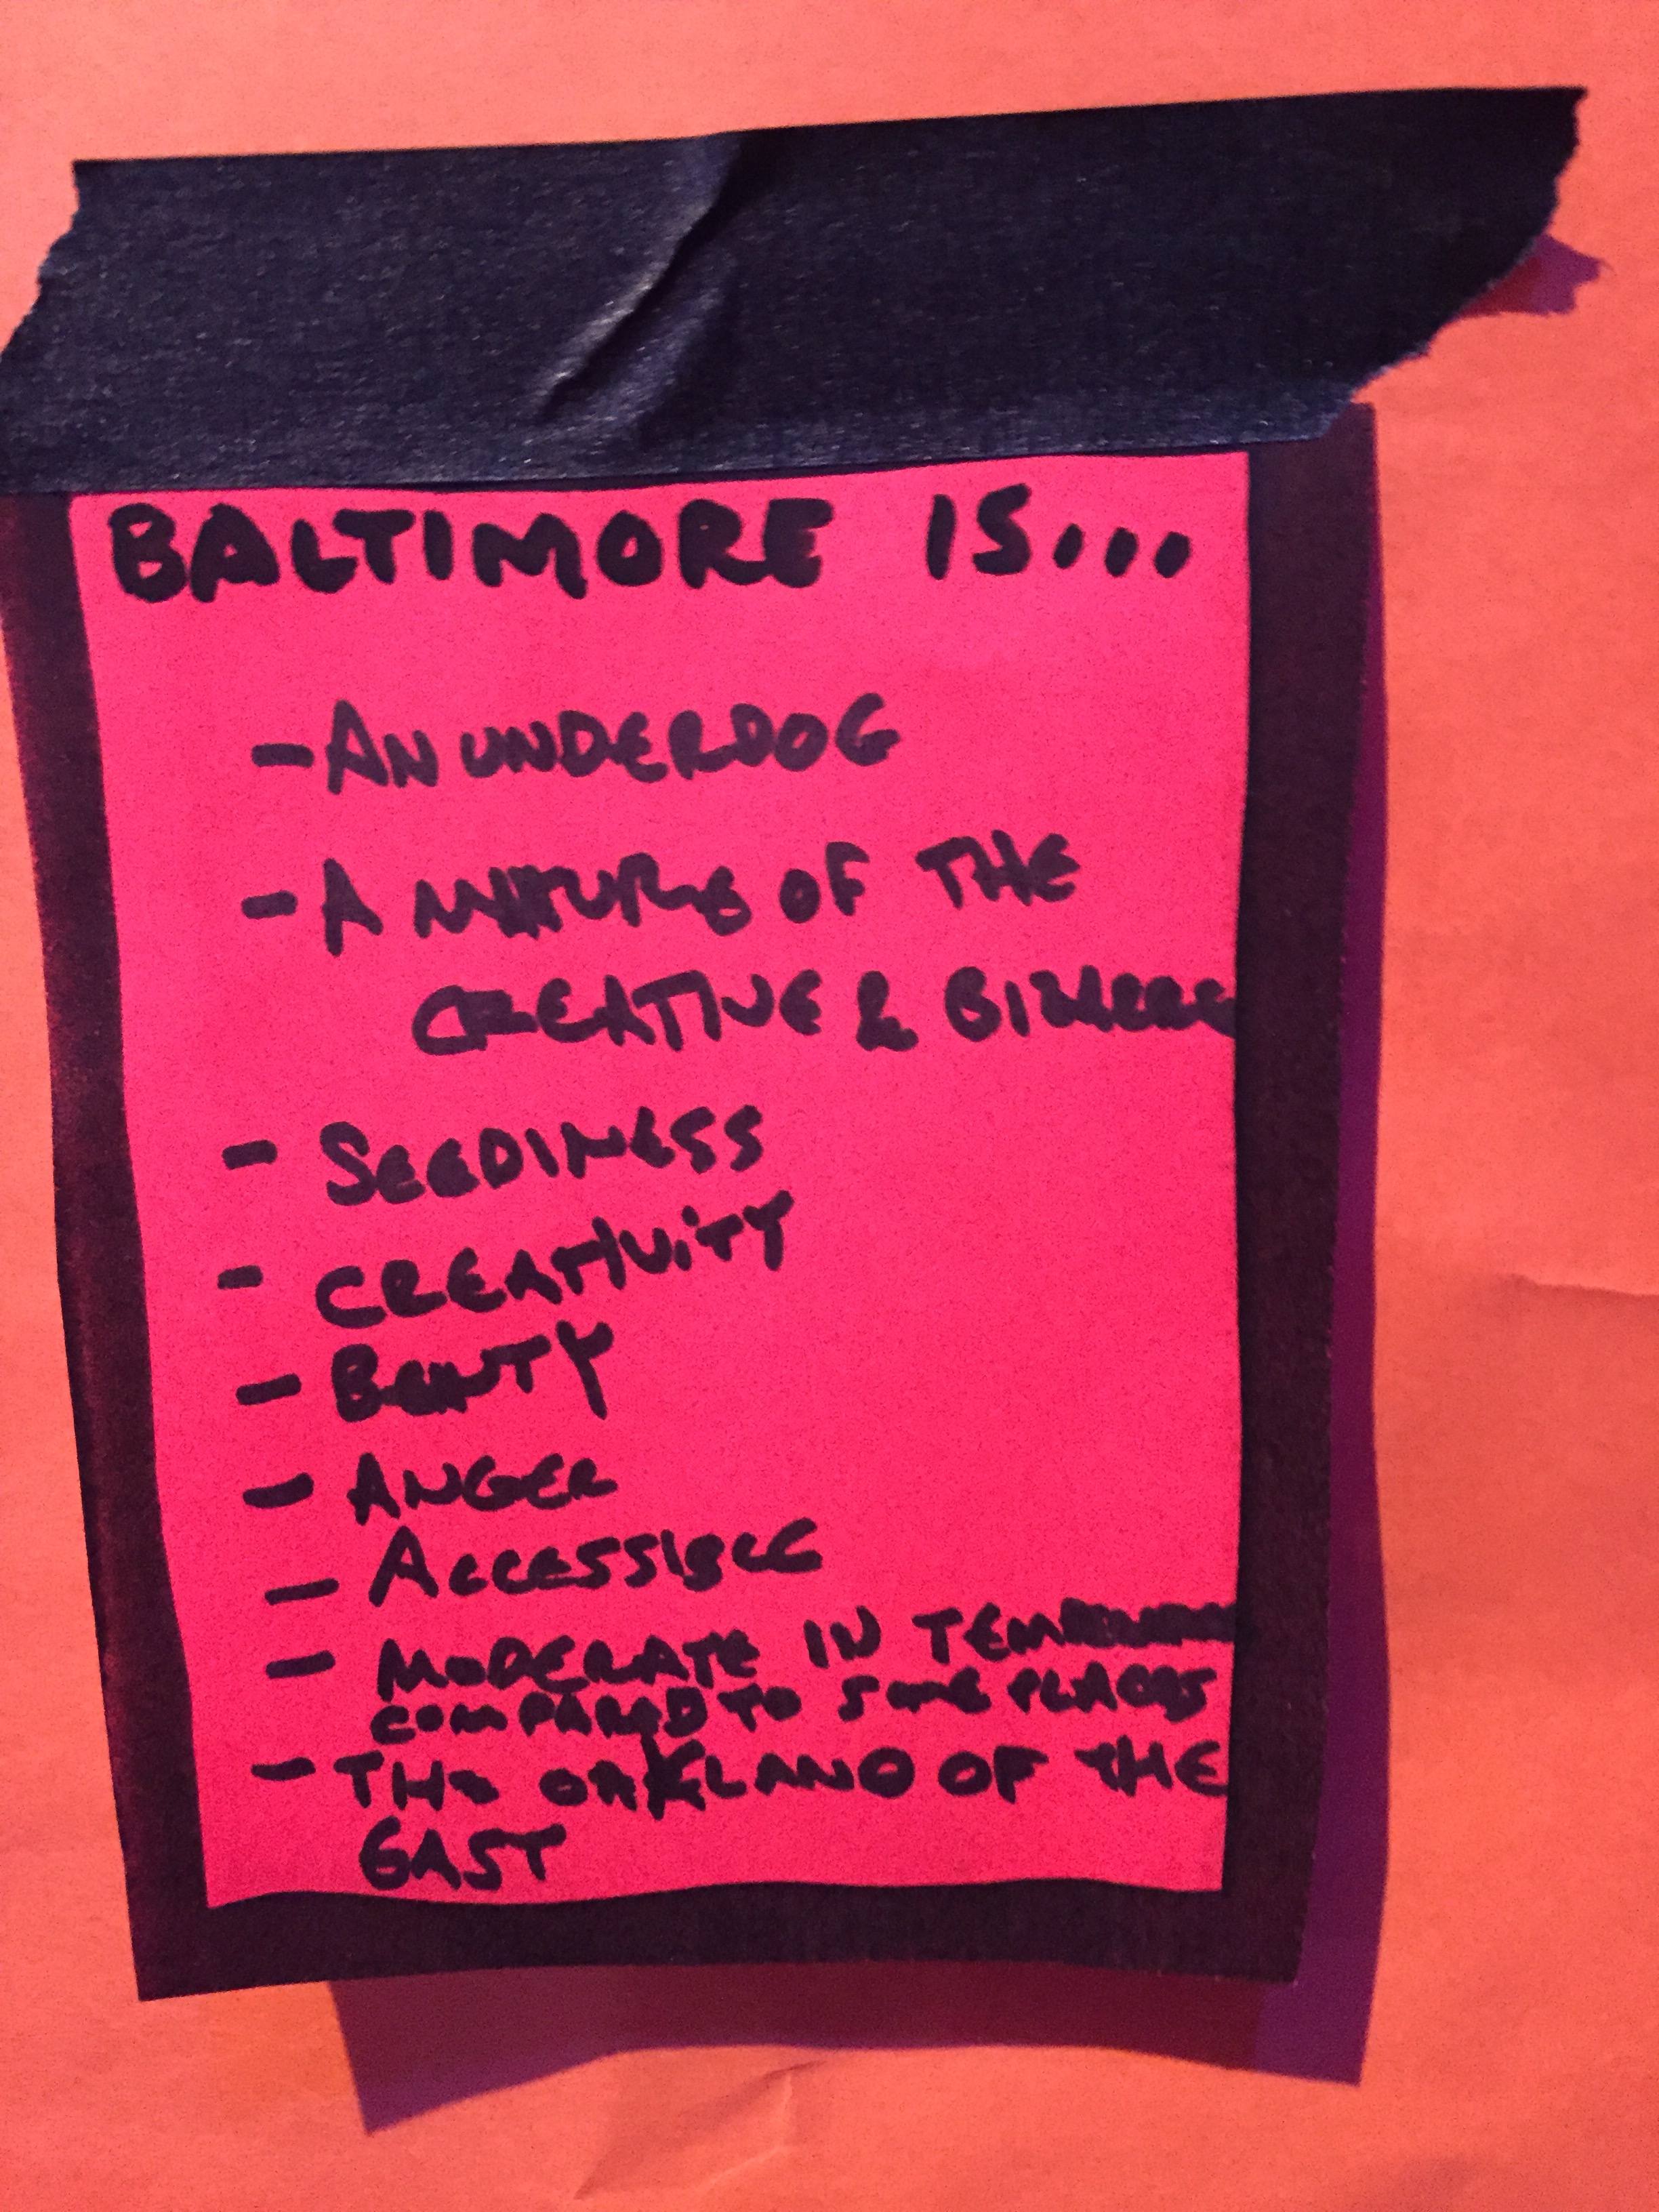 BALTIMORE IS...
- AN UNDERDOG
- A MIXTURE OF THE
CREATIVE & BIZARRE
- SEEDINESS
- CREATIVITY
- BEAUTY
- ANGER
- ACCESSIBLE
- MODERATE IN
COMPARED TO SOME PLACES
- THE OAKLAND OF THE
EAST